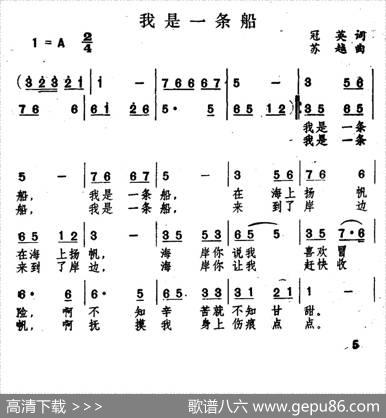 我是一条船
1=A 2/4
冠英 词
苏越 曲
(3 2 3 2 1 | 1 - | 7 6 6 6 6 7 | 5 - | 3 5 6 |
7 6 6 | 6 1 2 6 | 5· 5 | 6 5 1 2) | 3 5 6 5 |
我是一条
我是一条
5 - | 7 6 6 7 | 5 - | 3 5 6 | 7 6 6 |
船， 我是一条船， 在海上扬帆
船， 我是一条船， 来到了岸边
6 5 1 2 | 3 - | 3 5 | 6 5 5 | 3 5 7·6 |
在海上扬帆， 海岸你说我 喜欢冒
来到了岸边， 海岸你让我 赶快收
6· 6 | 5 1 6 | 6 5 3 3 | 3 1 0 2 1 | 1 - |
险， 啊不知辛苦就不知甘甜。
帆， 啊抚摸我身上伤痕点点。
5
高清下载 >>> 歌谱八六 www.gepu86.com